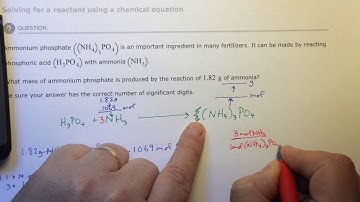 Solving for a reactant using a chemical equation
QUESTION
Ammonium phosphate ((NH4)3PO4) is an important ingredient in many fertilizers. It can be made by reacting
phosphoric acid (H3PO4) with ammonia (NH3).
What mass of ammonium phosphate is produced by the reaction of 1.82 g of ammonia?
Be sure your answer has the correct number of significant digits.
g
1.82g
mol
H3PO4 + 3NH3 → (NH4)3PO4
3 mol NH3
1 mol (NH4)3PO
1.82g
1069 mol